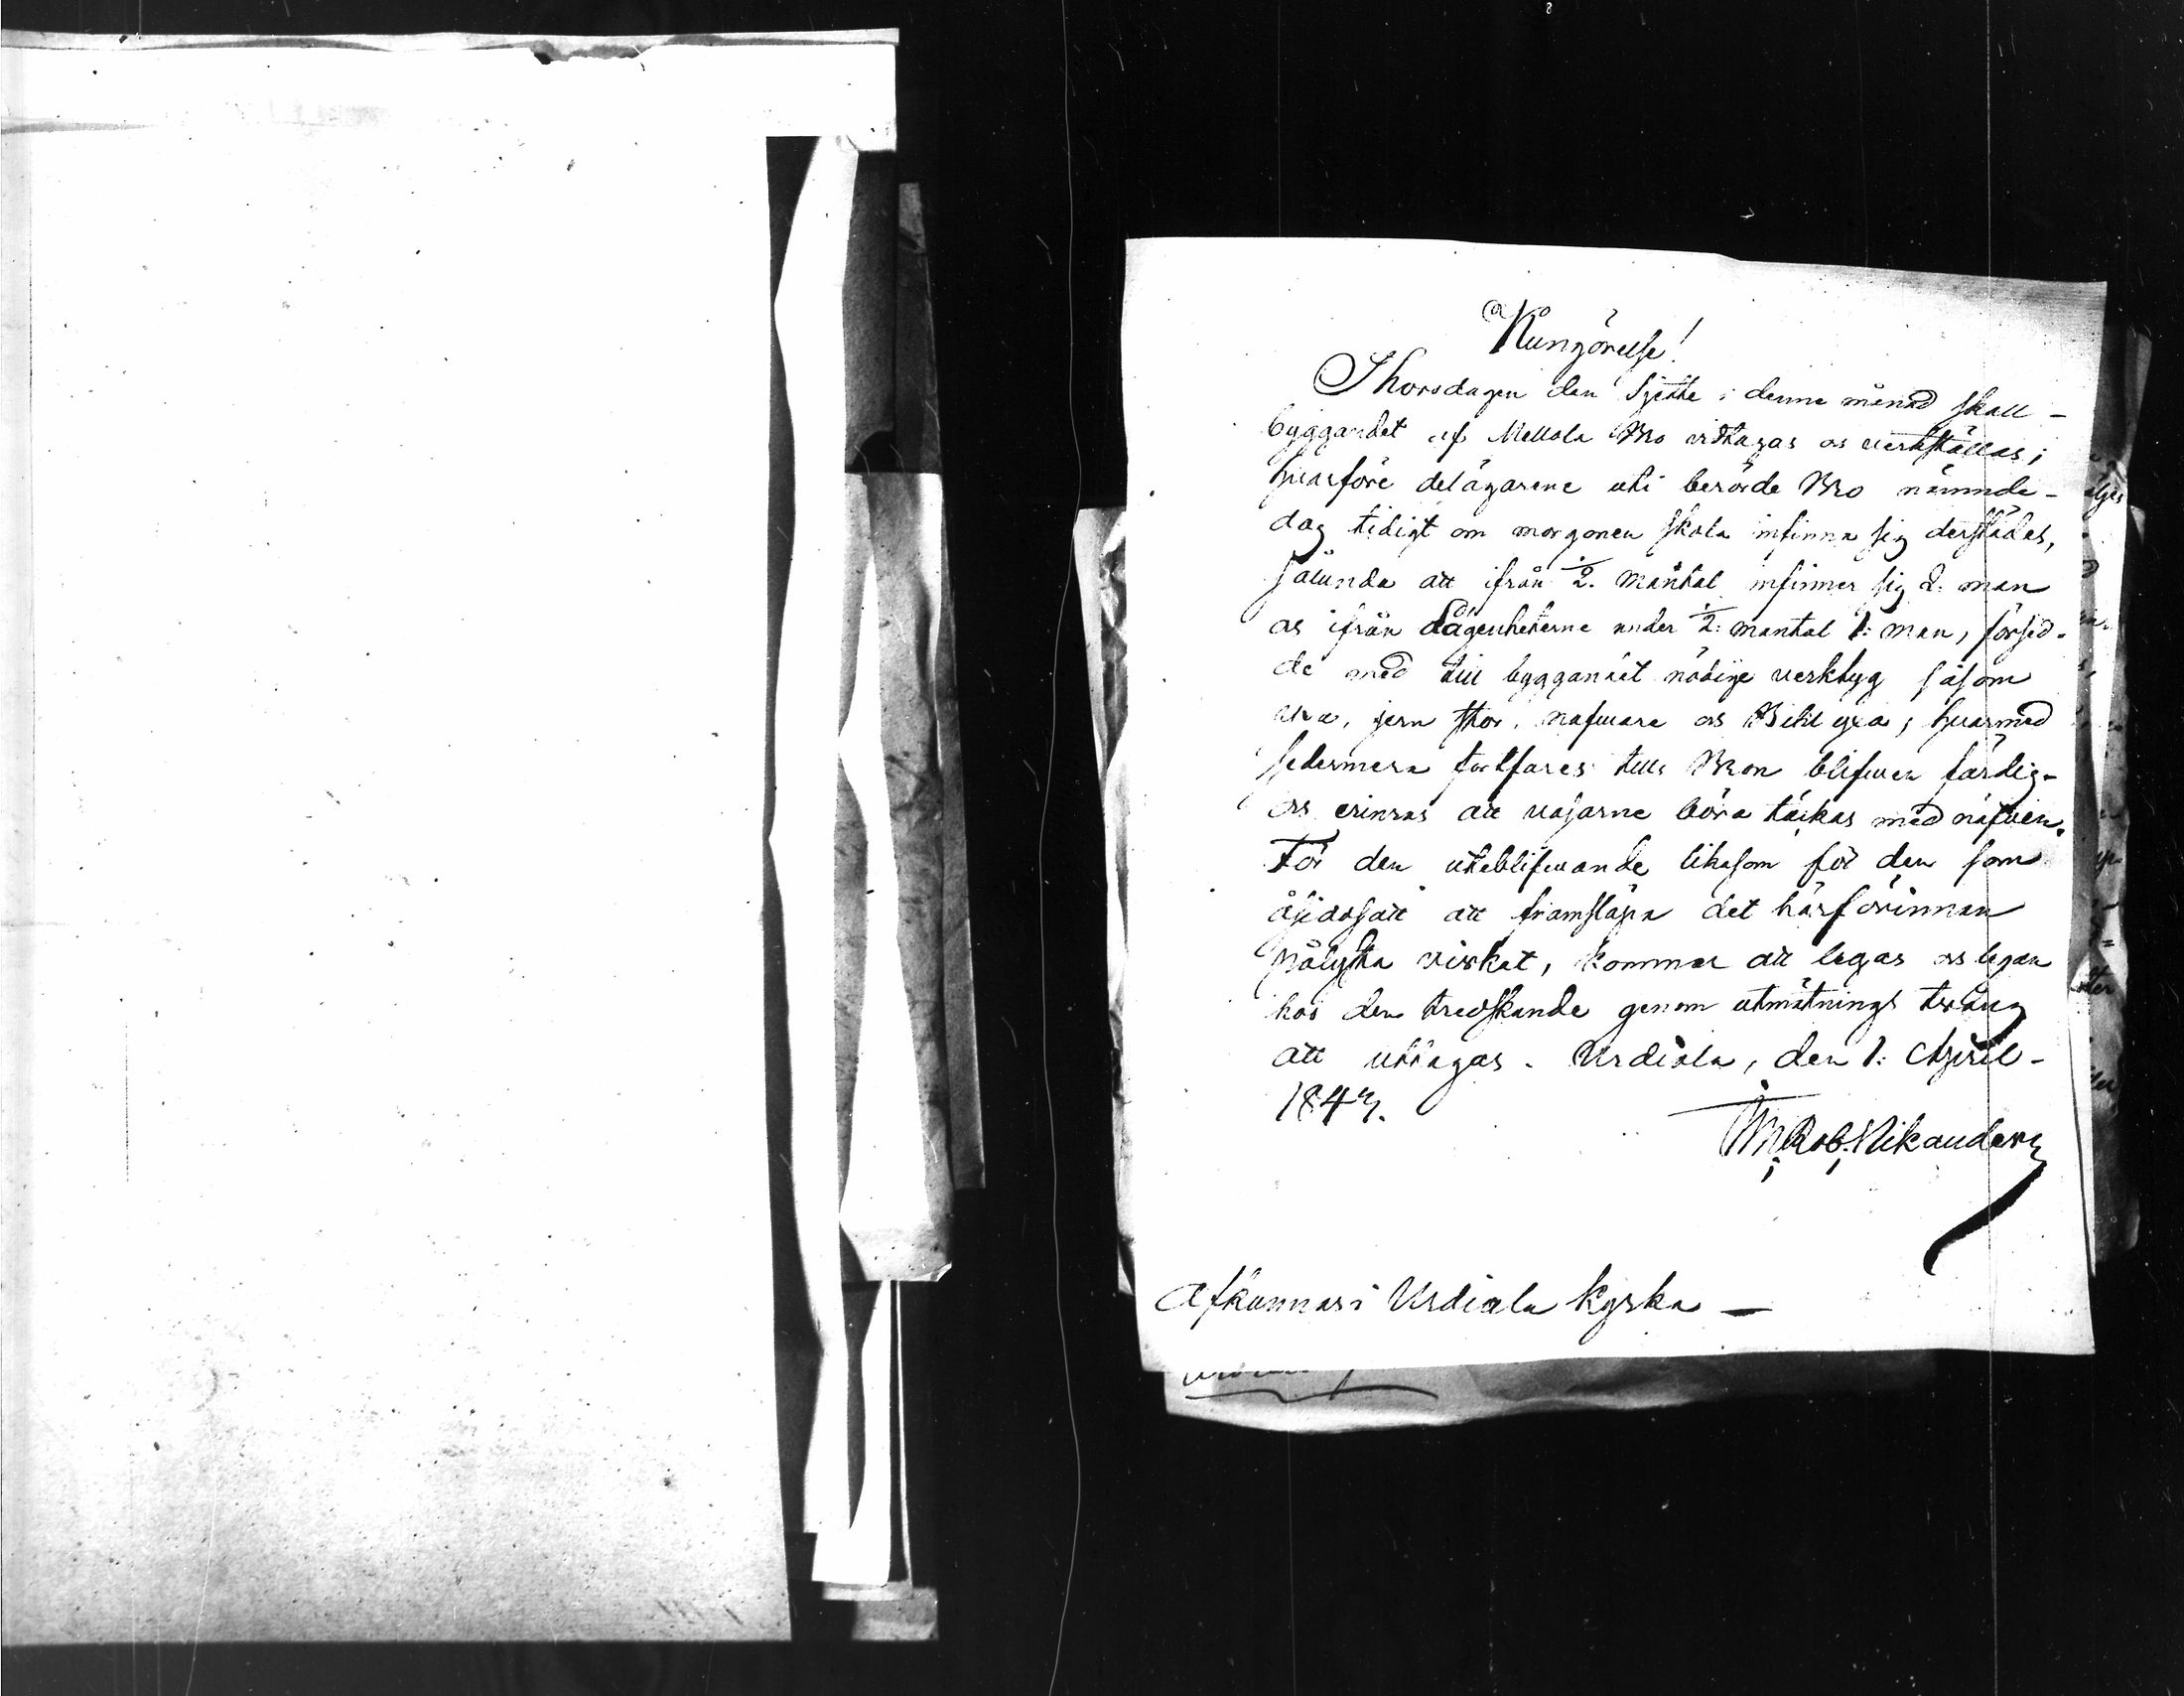 Kungörelse!
Thorsdagen den Sjette i denne månad skall
byggandet af Mellola Bro vidtagas os verkställas;
hvarföre delägarene uti berörde Bro nämnde
dag tidigt om morgonen skola infinna sig derstädes,
sålunda att ifrån ½. mantal infinner sig 2. man
os ifrån lägenheterne under ½: mantal 1: man, försed-
de med till byggandet nödige verktyg såsom
yxa, jern stör, nafware os Bihl yxa; hvarmed
sedermera fortfares tills Bron blifwer färdig-
os erinras att vasarne böra täckas med näfver.
För den uteblifwande likasom för den som
åsidosatt att framsläpa det härförinnan
pålysta virket, kommer att legas os legan
hos den tredskande genom utmätnings tvång
att uttagas. Urdiala, den 1: April-
1847.
Rob. Nikander
Afkunnas i Urdiala kyrka —